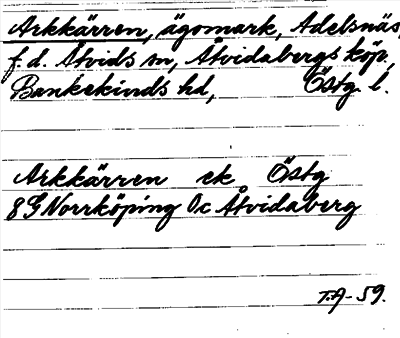 Arkkärren, ägomark, Adelsnäs,
f.d. Åtvids sn, Åtvidabergs köp,
Bankekinds hd, Östg. l.
Arkkärren ek Östg
8G Norrköping 0c Åtvidaberg
T.A-59.